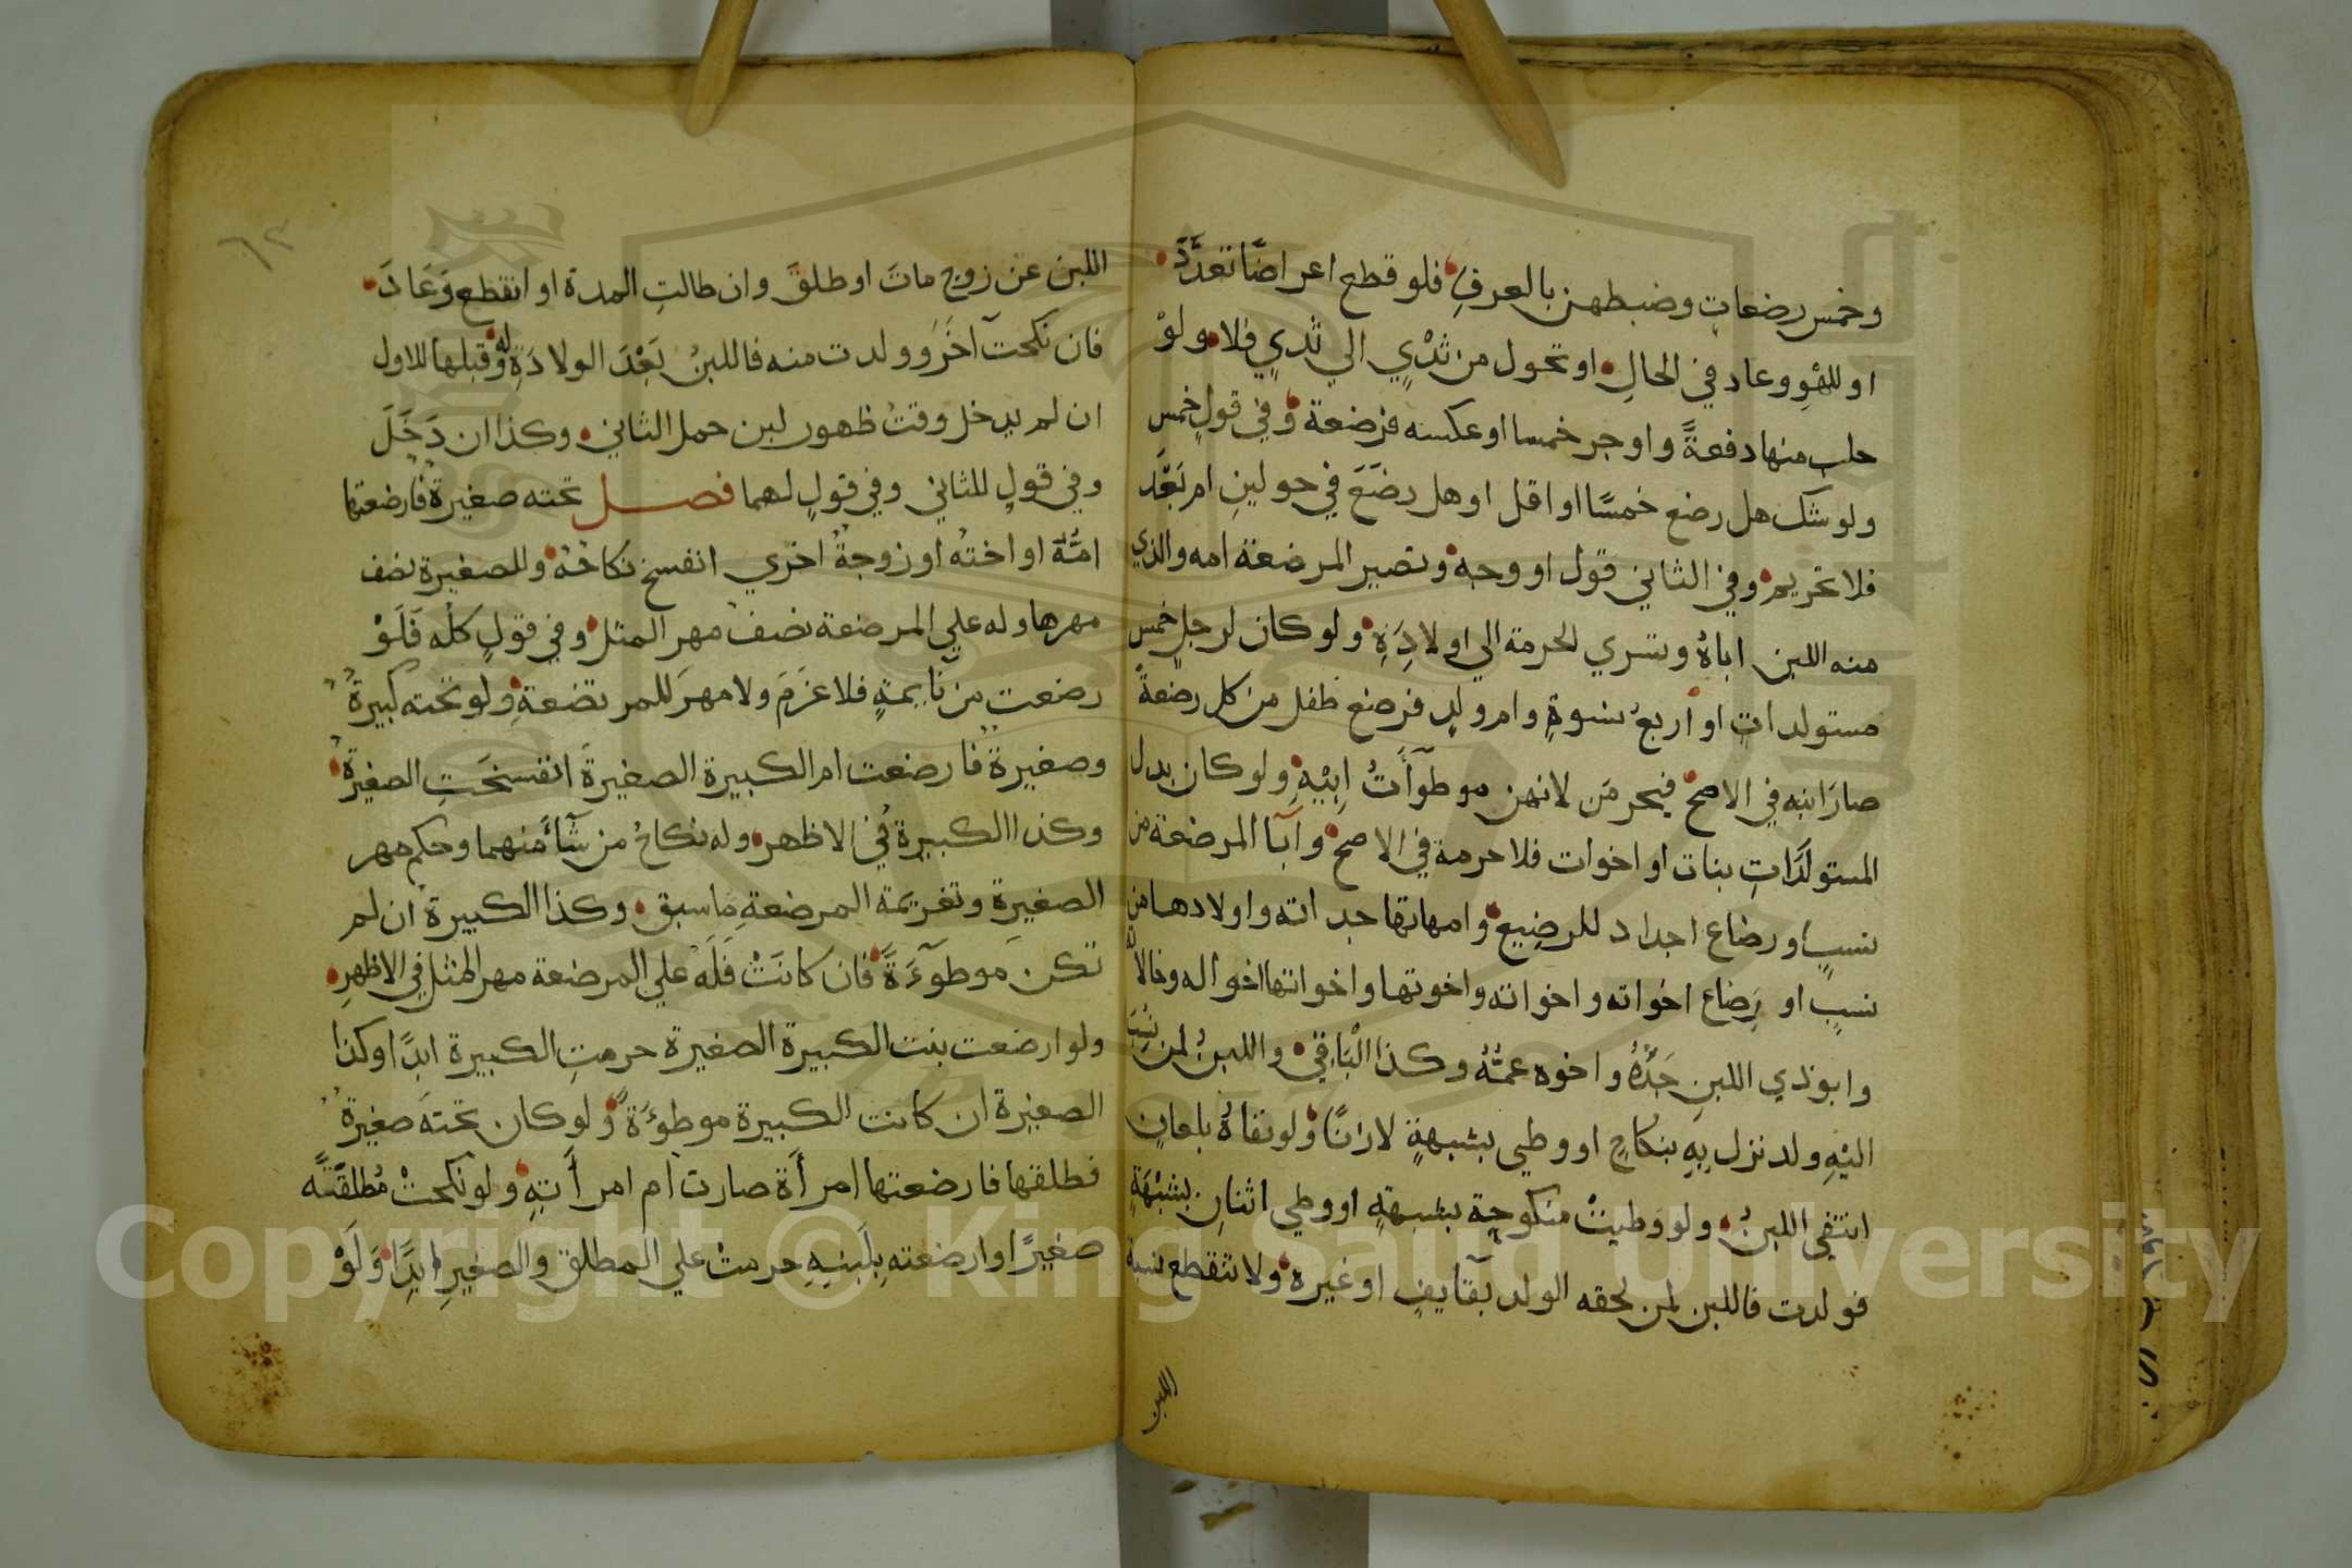 وخمس رضعاتٍ وضبطهن بالعرفِ فلو قطع اعراضًا تعدَّدَ
او للهْوٍ وعاد في الحالِ او تحول من ثدْيٍ الي ثديٍ فلا ولوْ
حلب منها دفعةً واوجر خمسا او عكسه فرضعة وفي قولٍ خمس
ولو شك هل رضع خمسًا او اقل او هل رضَعَ في حولينِ ام بَعْدُ
فلا تحريم وفي الثاني قول او وجه وتصير المرضعة امه والذي
منه اللبن اباهُ وتسري الحرمة الي اولادِهِ ولو كان لرجلٍ خمس
مستولداتٍ او اربعُ نسوةٍ وام ولدٍ فرضع طفل من كل رضعةً
صارَ ابنه في الاصح فيحرمَن لانهن موطوآتُ ابِيْهِ ولو كان بدل
المستولَدَاتِ بنات او اخوات فلا حرمة في الاصح وآبا المرضعة من
نسبٍ او رضاع اجداد للرضيع وامهاتها جداته واولادها من
نسبٍ او رضاع اخواته واخواته واخوتها واخواتها اخواله وخالاته
وابو ذي اللبنِ جَدُّهُ واخوه عمُّهُ وكذا الْبَاقِي واللبنُ لمن نُسِبَ
اليْهِ ولد نزل بِهِ بنكاحٍ او وطيٍ بشبهةٍ لا زنًا ولو نفاهُ بلعانٍ
انتفي اللبنُ ولو وطيتْ منكوحة بشبهةٍ او وطي اثنانِ بشبْهَةٍ
فولدت فاللبن لمن لحقه الولد بقآيفٍ او غيره ولا تنقطع نسبة
اللبن
اللبن عن زوجٍ ماتَ او طلقَ وان طالتِ المدة او انقطع وَعَادَ
فان نكحت آخَرَ وولدت منه فاللبنُ بَعْدَ الولادَةِ له وقبلها للاول
ان لم يدخل وقتُ ظهور لبن حمل الثاني وكذا ان دَخَلَ
وفي قولٍ للثاني وفي قولٍ لهما فصل تحته صغيرة فارضعتها
امُّهُ او اختُه او زوجةٌ اخري انفسخ نكاحُهُ وللصغيرة نصف
مهرها وله علي المرضعة نصفُ مهر المثل وفي قولٍ كلُه فَلَوْ
رضعت من نآيمةٍ فلا غرمَ ولا مهرَ للمرتضعةِ ولو تحته كبيرةٌ
وصغيرة فارضعت ام الكبيرة الصغيرةَ انفسخَتِ الصغيرةُ
وكذا الكبيرة في الاظهر وله نكاحُ من شآءَ منهما وحكم مهر
الصغيرةِ وتغريمه المرضعةِ ما سبق وكذا الكبيرة ان لم
تكن موطوءَةً فان كانَتْ فَلَهُ علي المرضعة مهر المثل في الاظهرِ
ولو ارضعت بنت الكبيرة الصغيرة حرمتِ الكبيرة ابدًا وكذا
الصغيرة ان كانت الكبيرة موطوءَةً ولو كان تحتَه صغيرةٌ
فطلقها فارضعتها امرأَة صارت ام امرأَتِهِ ولو نكحتْ مُطلقَتُه
صغيرًا وارضعته بِلَبَنِهِ حرمتْ علي المطلق والصغيرِ ابدًا وَلَوْ
Copyright © King Saud University